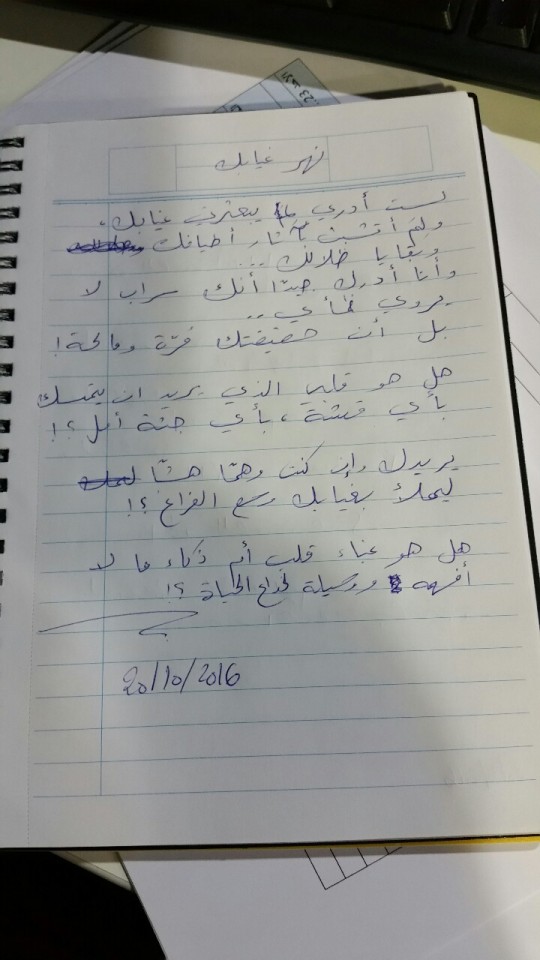 نهر غيابك
لست أدري لِمَ يبعثرني غيابك،
ولِمَ أتشبث بآثار أطيافك
وبقايا ظلالك...
وأنا أدرك جيدًا أنك سراب لا
يروي ظمأي..
بل أن حقيقتك مُرّة ومالحة!
هل هو قلبي الذي يريد ان يتمسك
بأي قشة، بأي جنة أمل؟!
يريدك وإن كنت وهمًا هشًّا
ليملأ بغيابك وسع الفراغ؟!
هل هو غباء قلب أم ذكاء ما لا
أفهمه ووسيلة لخداع الحياة؟!
20/10/2016